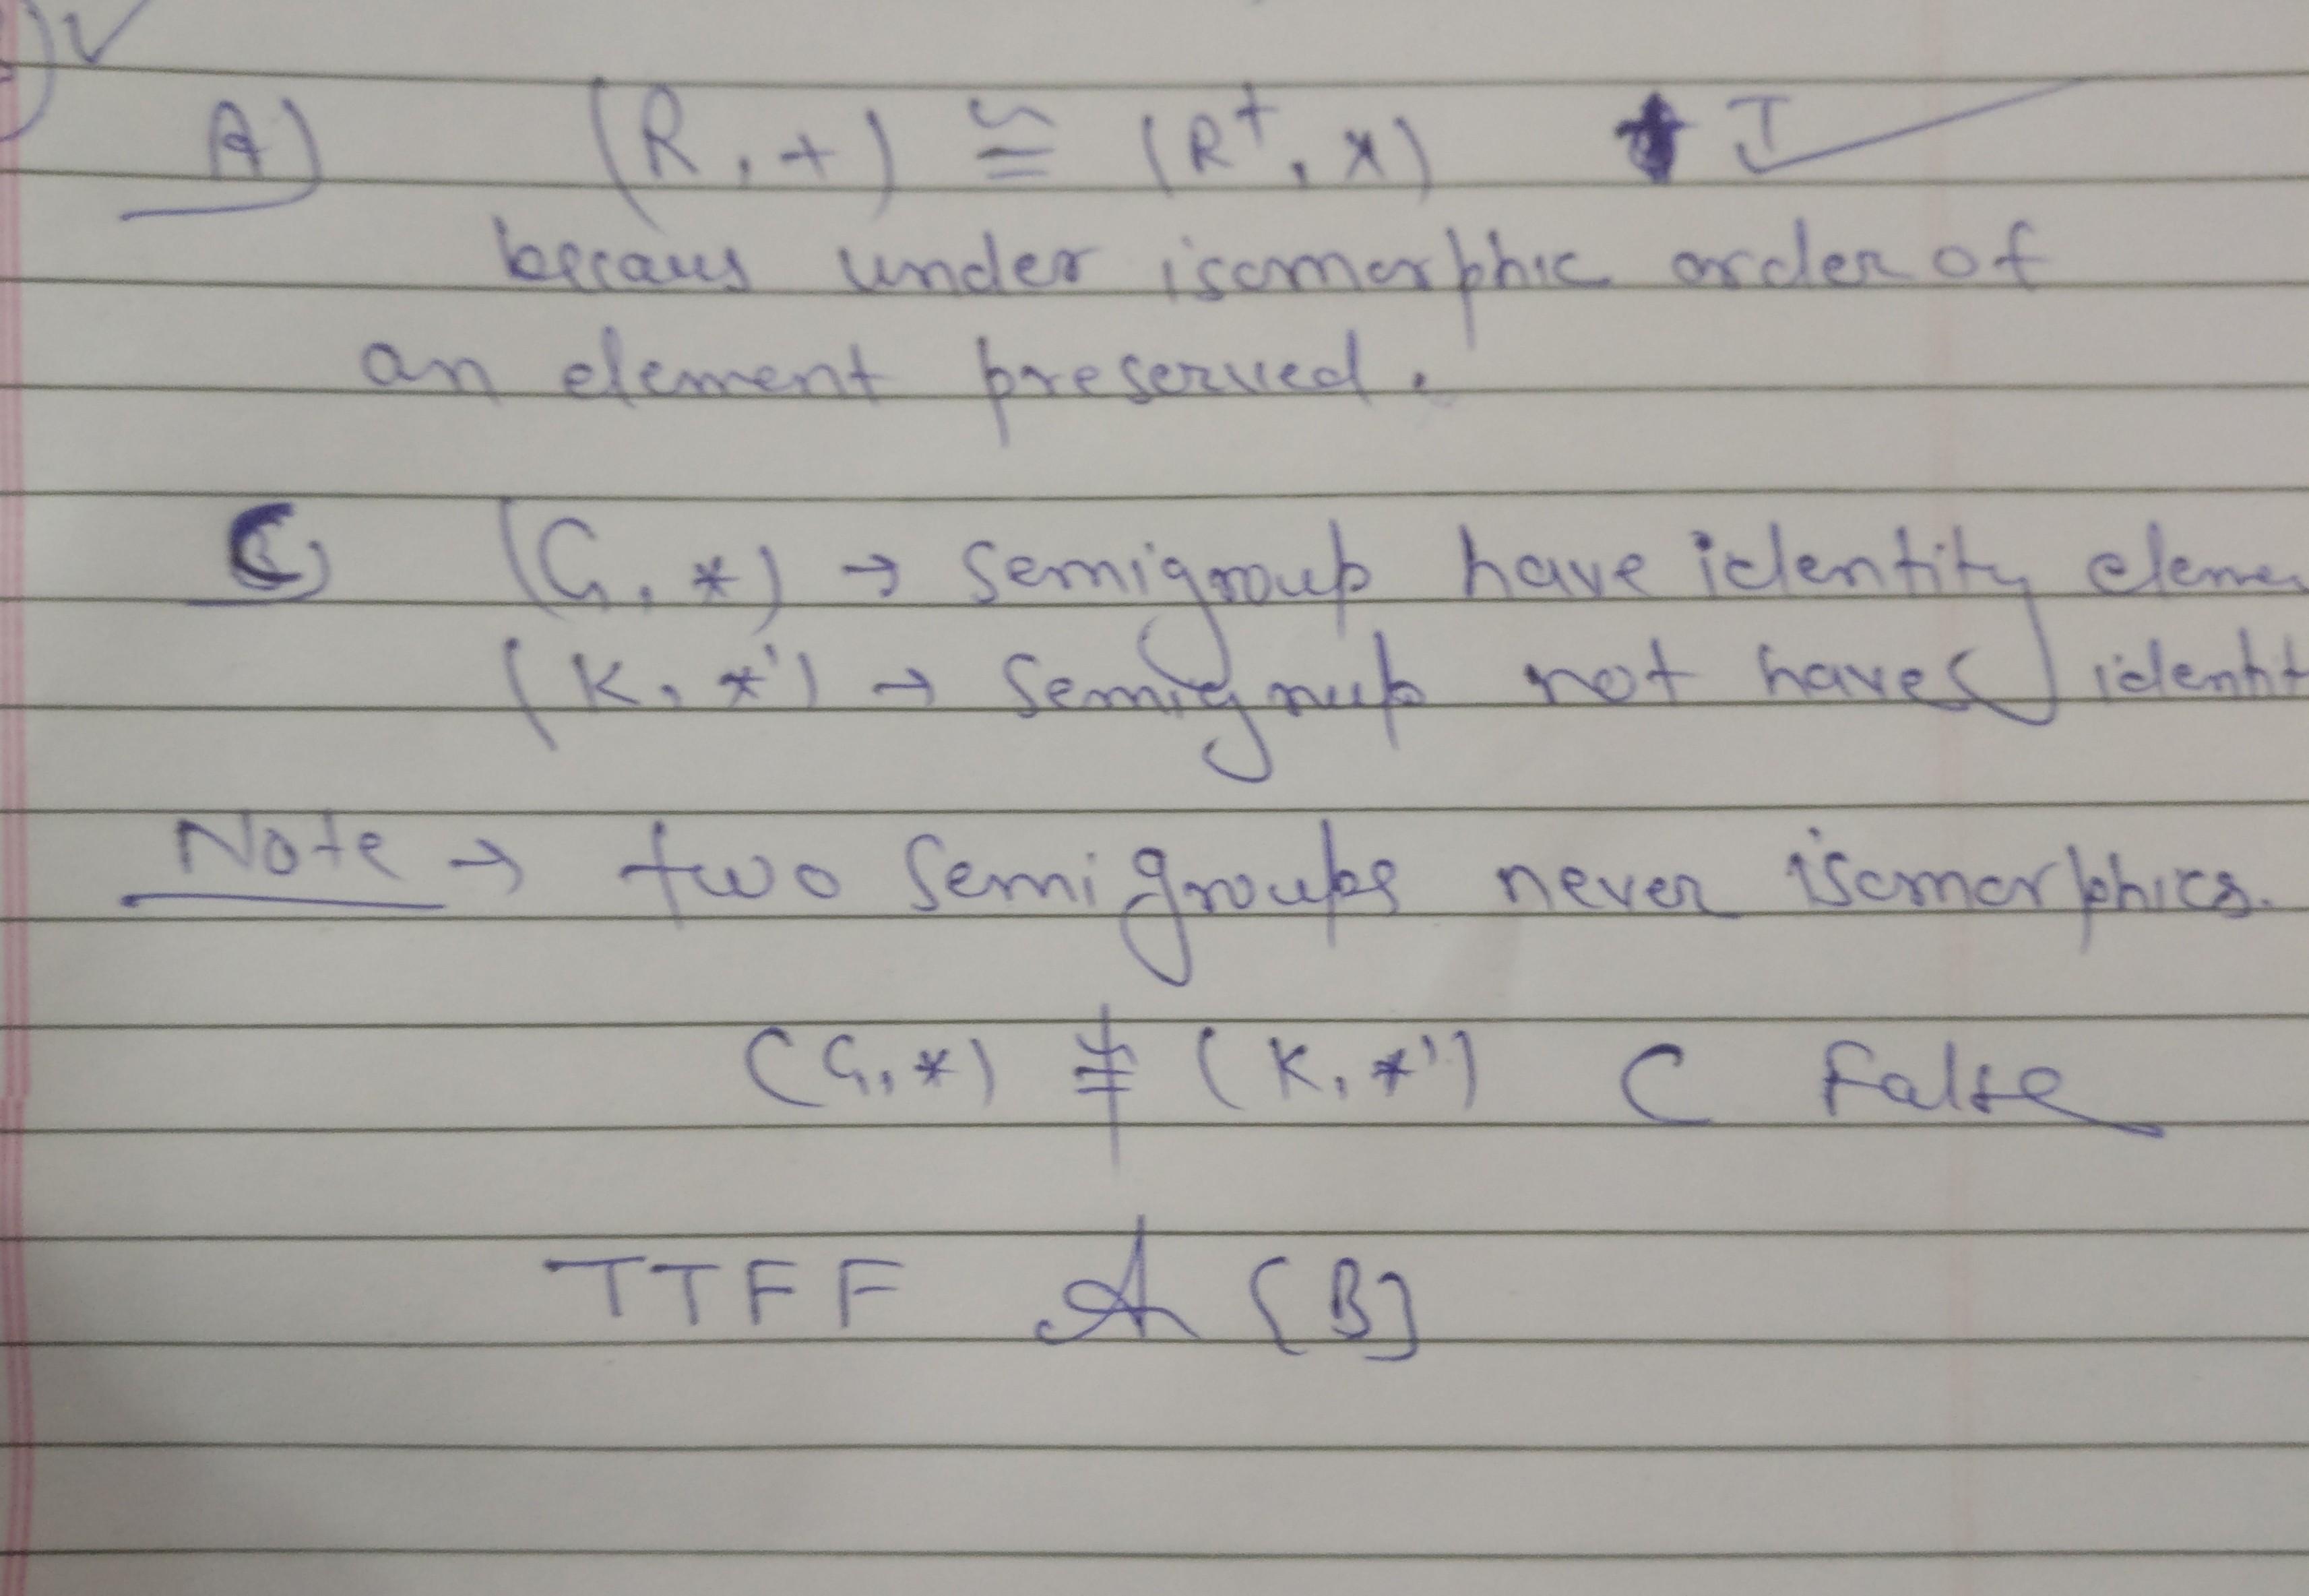 A) (R, +) ≅ (R⁺, ×) T
becaus under isomorphic order of
an element preserved.
C) (G, *) → Semigroup have identity eleme
(K, *') → Semigroup not haves identit
Note → two Semigroups never isomorphics.
(G, *) ≇ (K, *') C False
TTFF A [B]